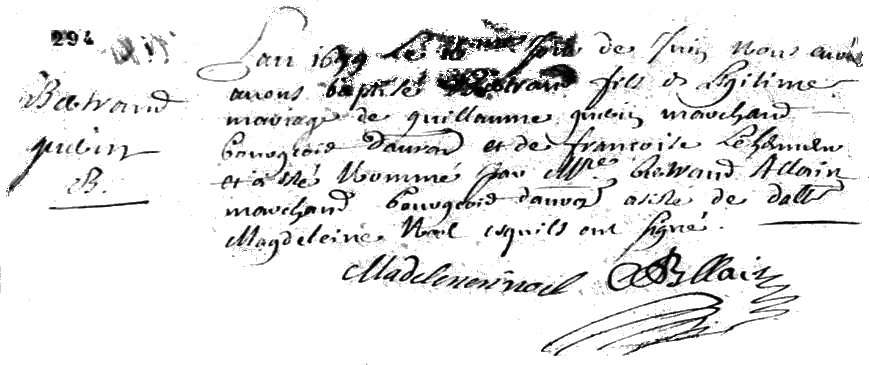 294
Bertrand
guerin
B.
L'an 1699 Le jour de Juin Nous curé
avons baptisé Bertrand fils de Legitime
mariage de guillaume guerin marchand
bourgeois d'auray et de francoise Le
et a esté Nommé par Mre bertrand Allain
marchand bourgeois d'auray asisté de dalle
Magdeleine Noel esquils ont signé.
Madeleine noel BAllain